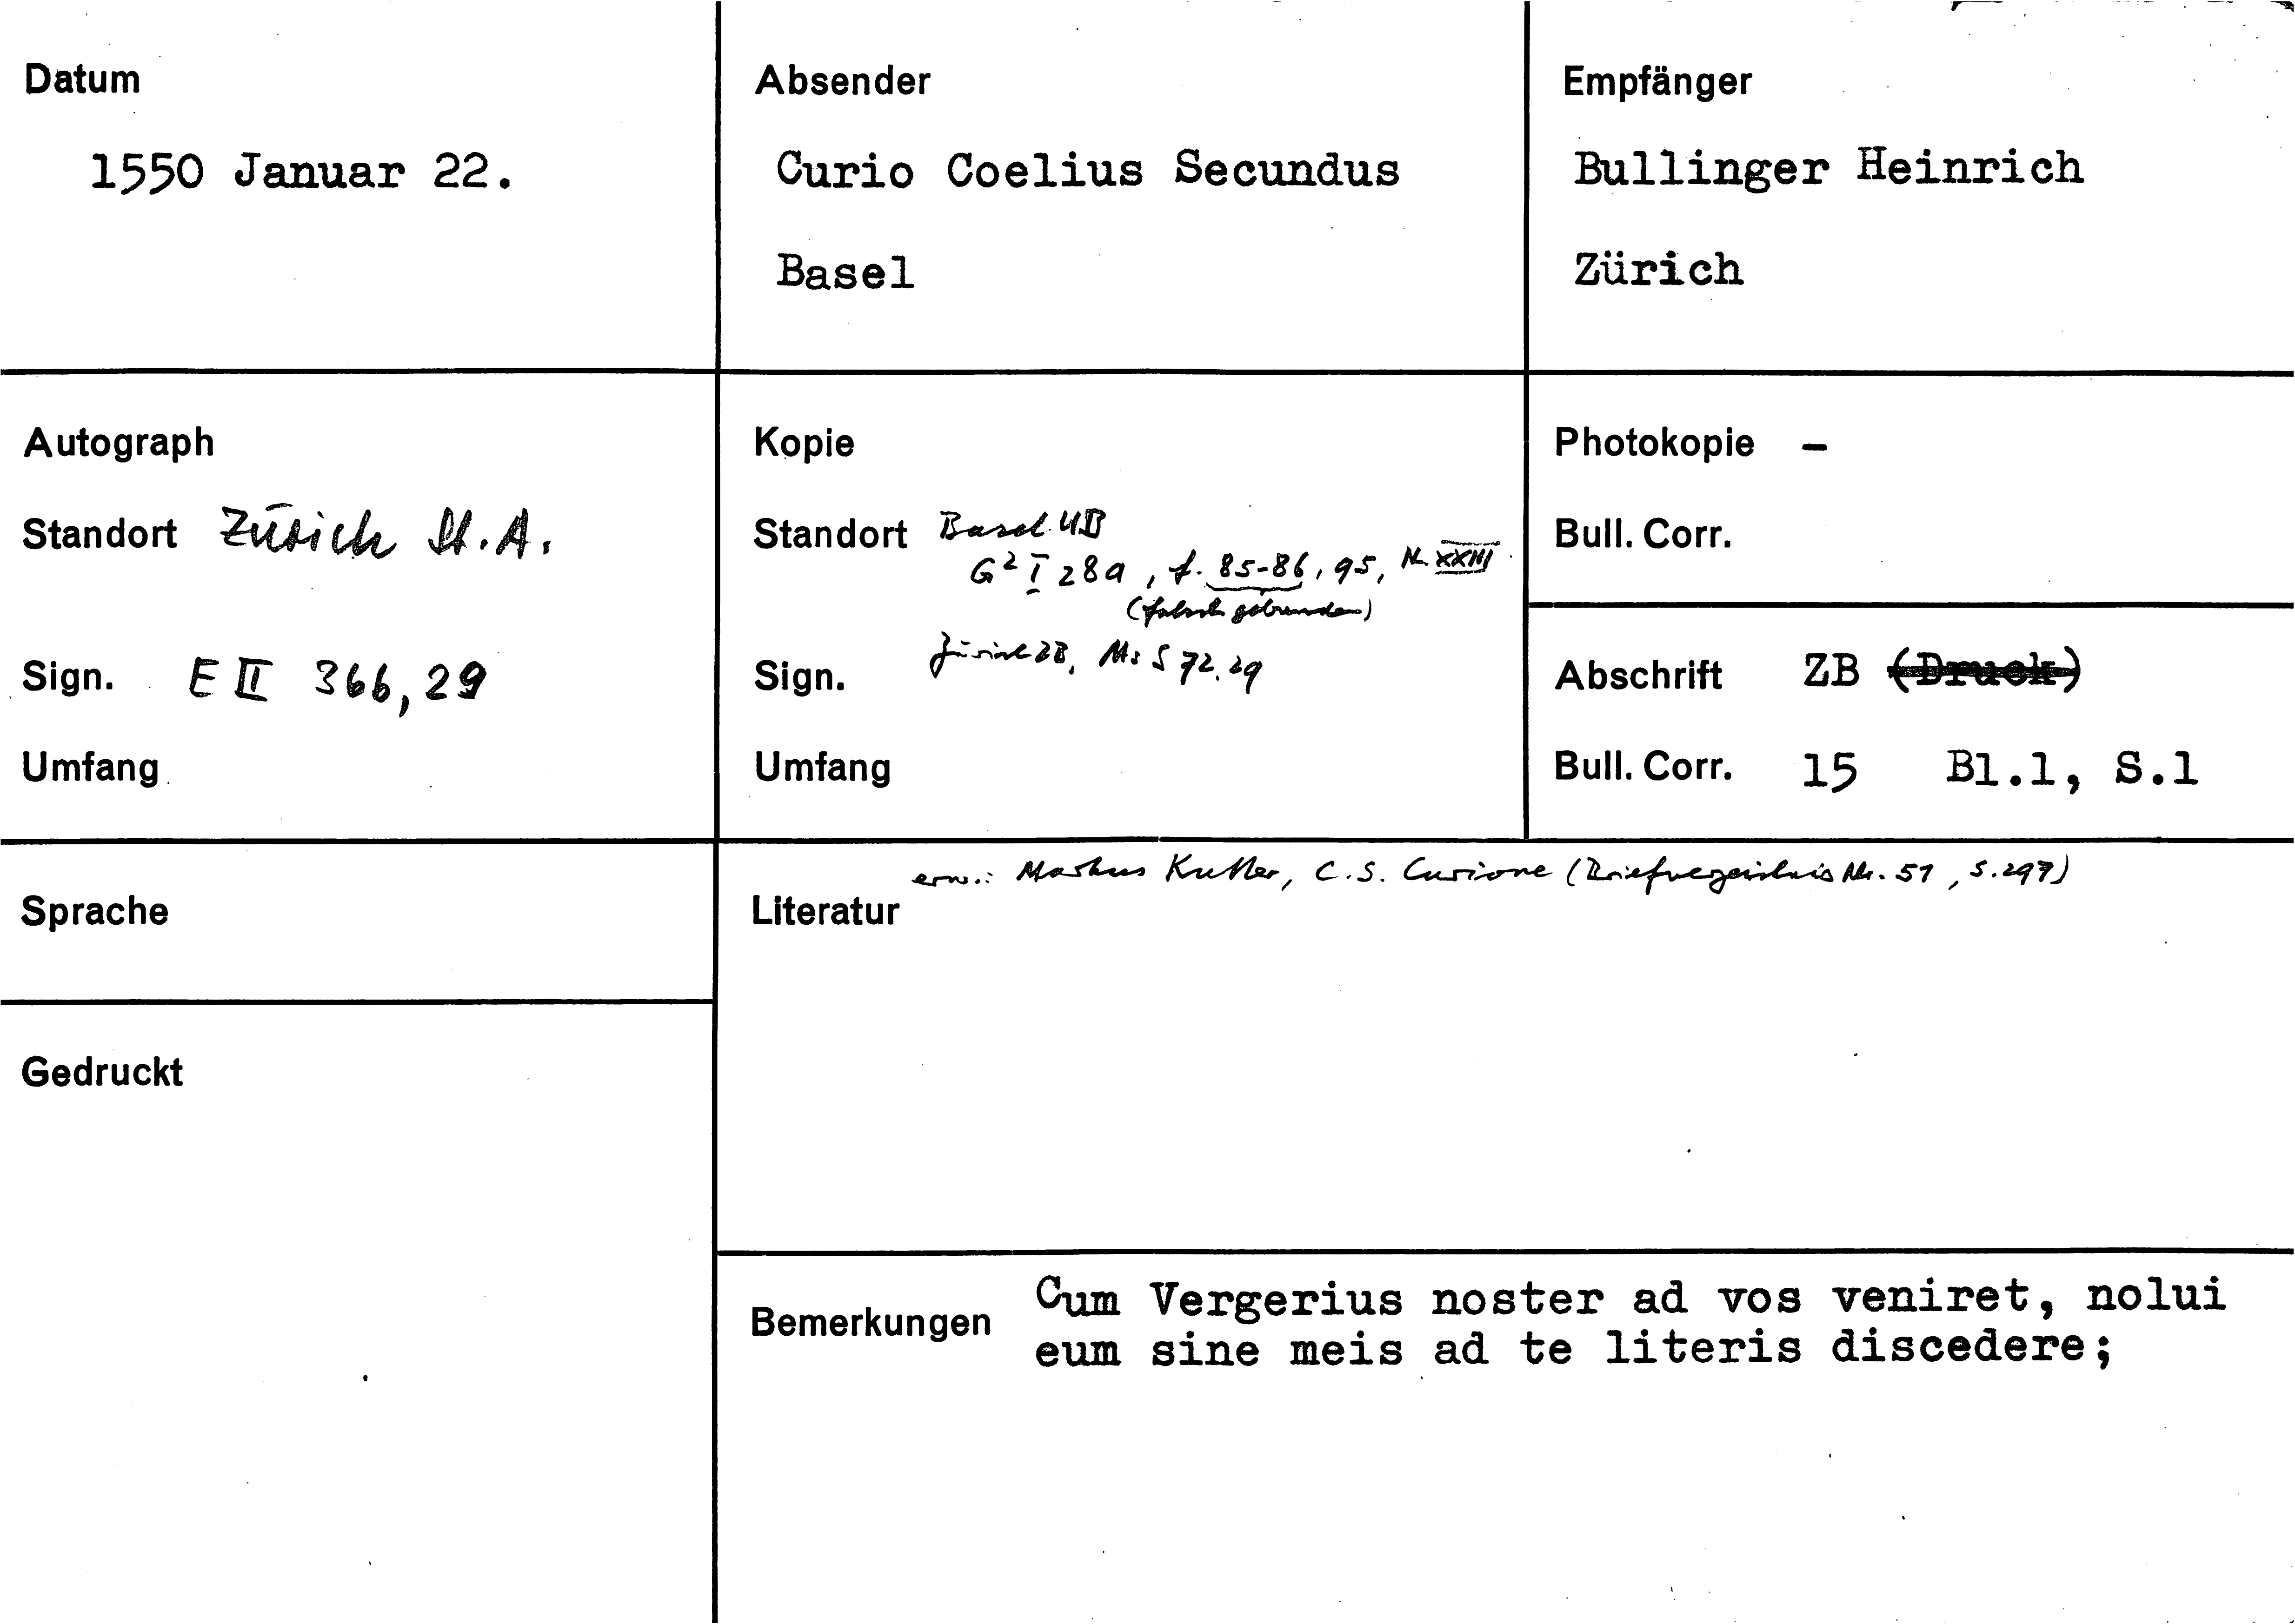 Datum
1550 Januar 22.
Absender
Curio Coelius Secundus
Basel
Empfänger
Bullinger Heinrich
Zürich
Autograph
Standort Zürich St.A.
Sign. E II 366,29
Umfang
Kopie
Standort Basel UB
G² I 28a, f. 85-86, 95, Nr. XXIII
(falsch gebunden)
Sign. Zürich ZB, Ms S 72.29
Umfang
Photokopie -
Bull. Corr.
Abschrift ZB (Druck)
Bull. Corr. 15 Bl.1, S.1
Sprache
Gedruckt
erw.: Markus Kutter, C.S. Curione (Briefverzeichnis Nr. 51, S.297)
Literatur
Bemerkungen Cum Vergerius noster ad vos veniret, nolui
eum sine meis ad te literis discedere;